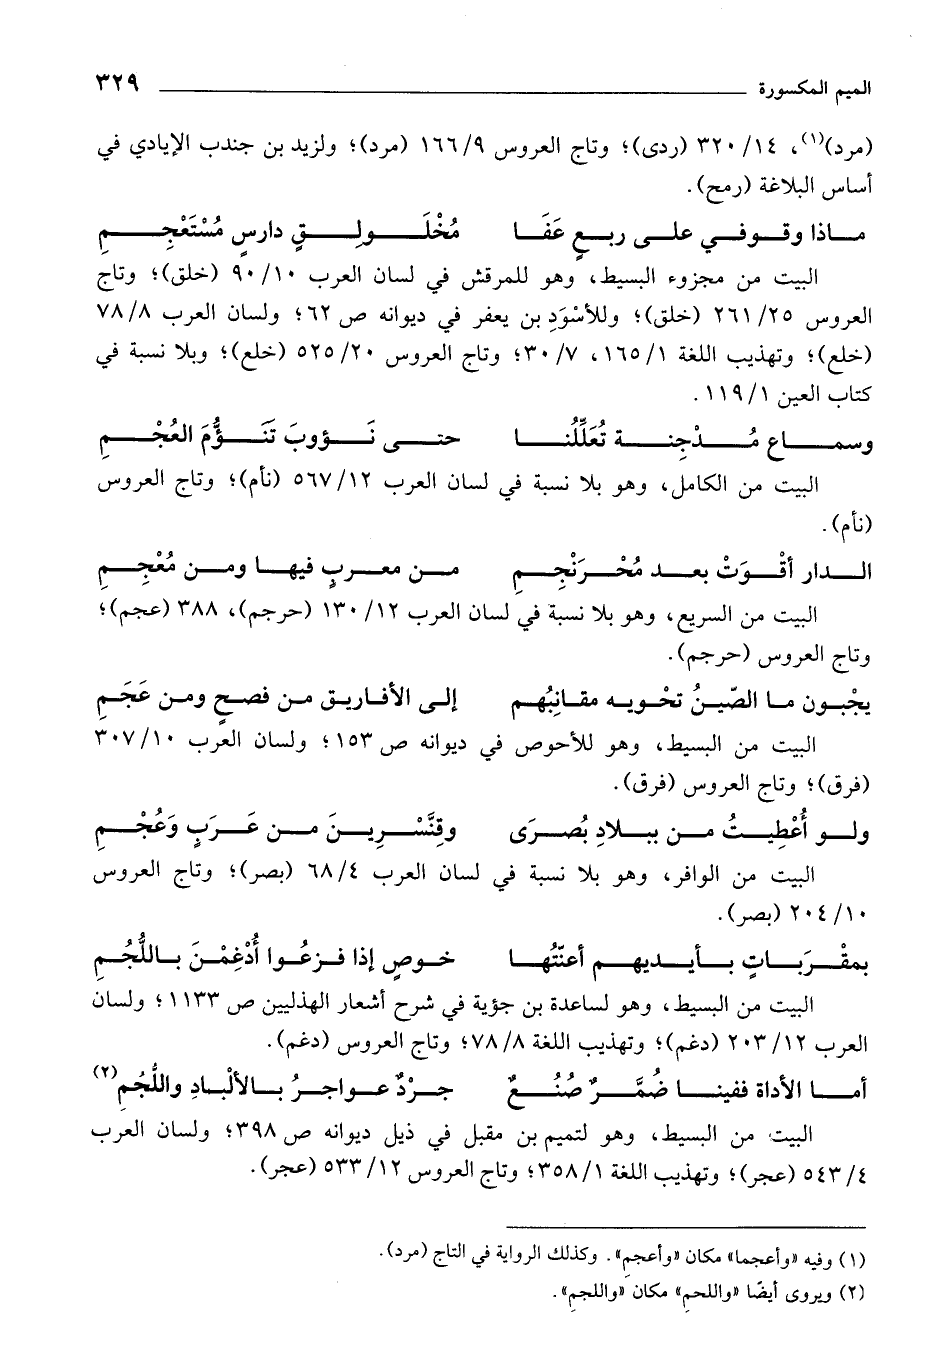 الميم المكسورة ٣٢٩
(مرد)(١)، ١٤/ ٣٢٠ (ردى)؛ وتاج العروس ٩/ ١٦٦ (مرد)؛ ولزيد بن جندب الإيادي في
أساس البلاغة (رمح).
مـاذا وقـوفـي علـى ربـعٍ عَفَـا مُخْلَـولِـقٍ دارسٍ مُسْتَعْجِـمِ
البيت من مجزوء البسيط، وهو للمرقش في لسان العرب ١٠/ ٩٠ (خلق)؛ وتاج
العروس ٢٥/ ٢٦١ (خلق)؛ وللأسْوَدِ بن يعفر في ديوانه ص ٦٢؛ ولسان العرب ٨/ ٧٨
(خلع)؛ وتهذيب اللغة ١/ ١٦٥، ٧/ ٣٠؛ وتاج العروس ٢٠/ ٥٢٥ (خلع)؛ وبلا نسبة في
كتاب العين ١/ ١١٩.
وسمـاع مُـدْجِنـة تُعَلِّلُنـا حتـى نَـؤوبَ تَنَـؤُّمَ العُجْـمِ
البيت من الكامل، وهو بلا نسبة في لسان العرب ١٢/ ٥٦٧ (نأم)؛ وتاج العروس
(نأم).
الـدار أقْـوَتْ بعـد مُحْـرَنْجِـمِ مـن معـربٍ فيهـا ومـن مُعْجِـمِ
البيت من السريع، وهو بلا نسبة في لسان العرب ١٢/ ١٣٠ (حرجم)، ٣٨٨ (عجم)؛
وتاج العروس (حرجم).
يجْبـون مـا الصّيـنُ تحْـويـه مقـانِبُهـم إلـى الأفـاريـق مـن فصحٍ ومـن عَجَـمِ
البيت من البسيط، وهو للأحوص في ديوانه ص ١٥٣؛ ولسان العرب ١٠/ ٣٠٧
(فرق)؛ وتاج العروس (فرق).
ولـو أُعْطِيـتُ مـن ببـلادِ بُصْـرَى وقِنَّسْـرِيـنَ مـن عَـرَبٍ وَعُجْـمِ
البيت من الوافر، وهو بلا نسبة في لسان العرب ٤/ ٦٨ (بصر)؛ وتاج العروس
١٠/ ٢٠٤ (بصر).
بمقْـرَبـاتٍ بـأيـديهـم أعنّتُهـا خـوصٍ إذا فـزعُـوا أُدْغِمْـنَ بـاللُّجُـمِ
البيت من البسيط، وهو لساعدة بن جؤية في شرح أشعار الهذليين ص ١١٣٣؛ ولسان
العرب ١٢/ ٢٠٣ (دغم)؛ وتهذيب اللغة ٨/ ٧٨؛ وتاج العروس (دغم).
أمـا الأداة ففينـا ضُمَّـرٌ صُنُـعٌ جـرْدٌ عـواجـرُ بـالألْبـادِ واللُّجُمِ(٢)
البيت من البسيط، وهو لتميم بن مقبل في ذيل ديوانه ص ٣٩٨؛ ولسان العرب
٤/ ٥٤٣ (عجر)؛ وتهذيب اللغة ١/ ٣٥٨؛ وتاج العروس ١٢/ ٥٣٣ (عجر).
(١) وفيه «وأعجما» مكان «وأعجمِ». وكذلك الرواية في التاج (مرد).
(٢) ويروى أيضًا «واللحمِ» مكان «واللجمِ».